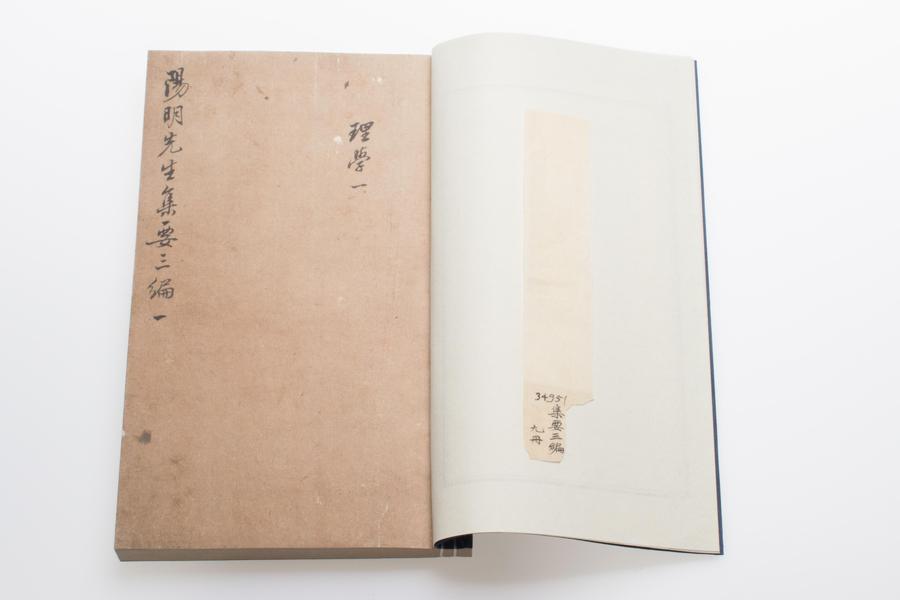 34951
集要三編
九冊
理學一
陽明先生集要三編
一